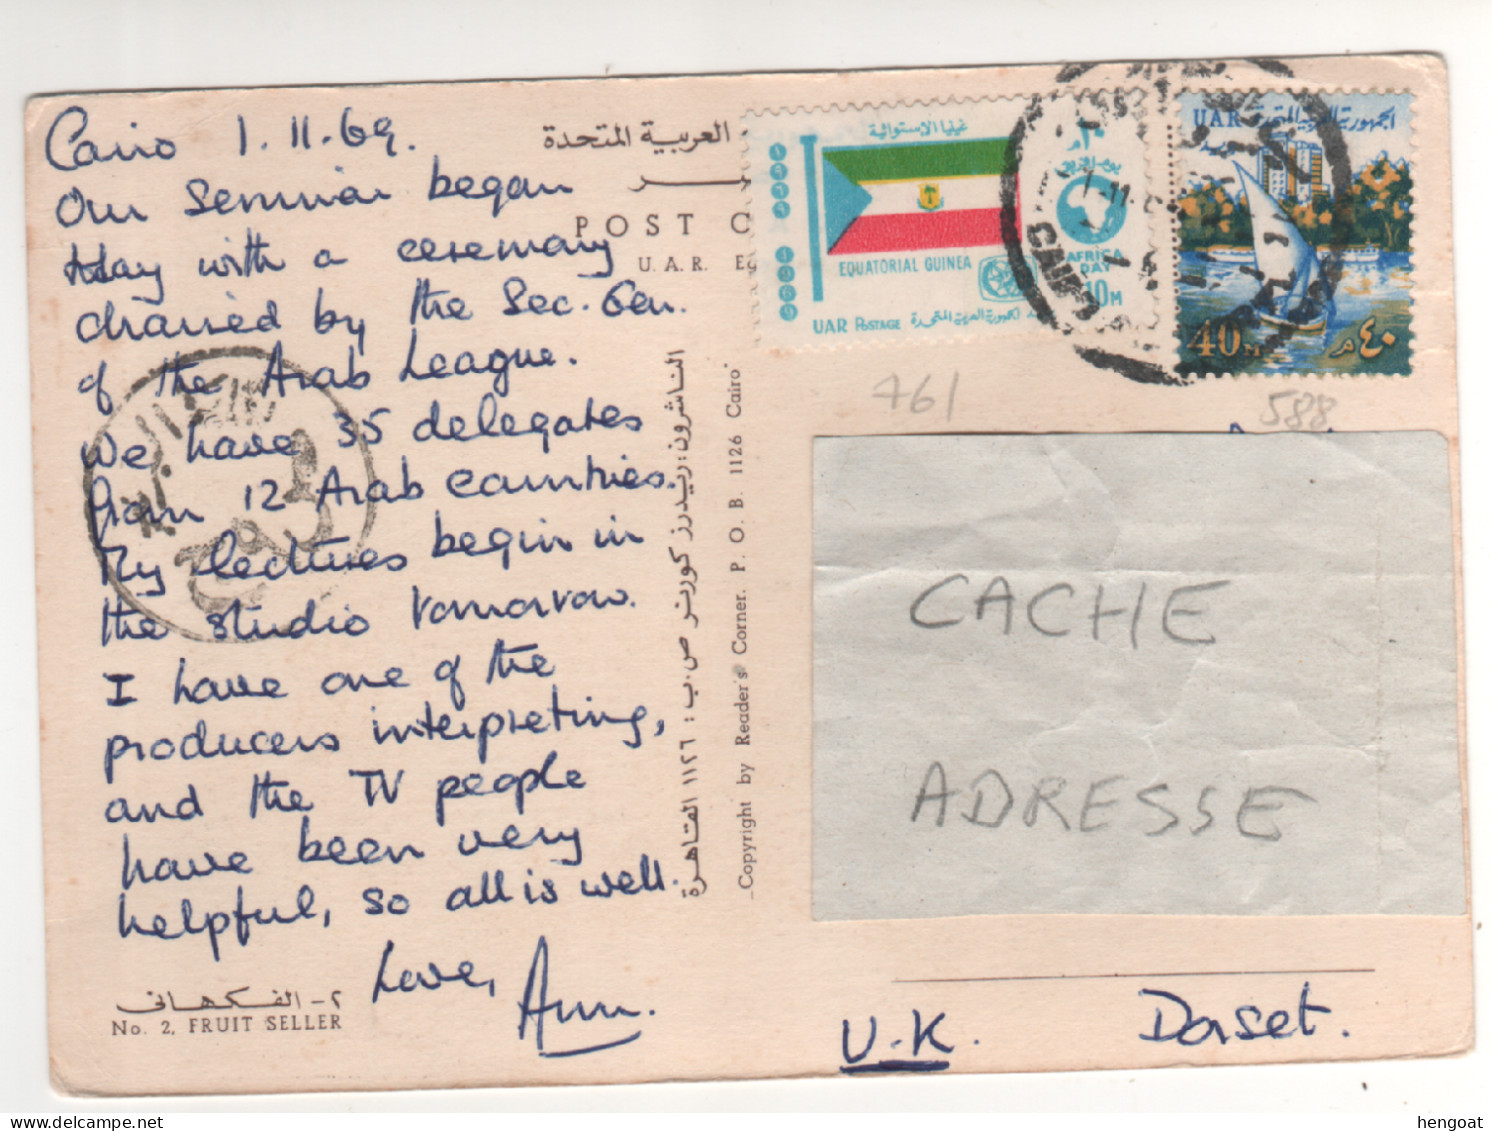 Cairo 1.11.69.
Our seminar began
today with a ceremony
chaired by the Sec. Gen.
of the Arab League.
We have 35 delegates
from 12 Arab countries.
My lectures begin in
the studio tomorrow.
I have one of the
producers interpreting,
and the TV people
have been very
helpful, so all is well.
Love,
Ann.
٢ - الفكهانى
No. 2, FRUIT SELLER
العربية المتحدة
POST C
U. A. R. E
الناشرون: ريدرز كورنر ص.ب: ١١٢٦ القاهرة
Copyright by Reader's Corner. P. O. B. 1126 Cairo
غينيا الاستوائية
1969
1969
EQUATORIAL GUINEA
AFRICA
DAY
10M
UAR POSTAGE
UAR
الجمهورية العربية المتحدة
40M
٤٠م
CAIRO
461
588
CACHE
ADRESSE
U.K.
Dorset.
hengoat